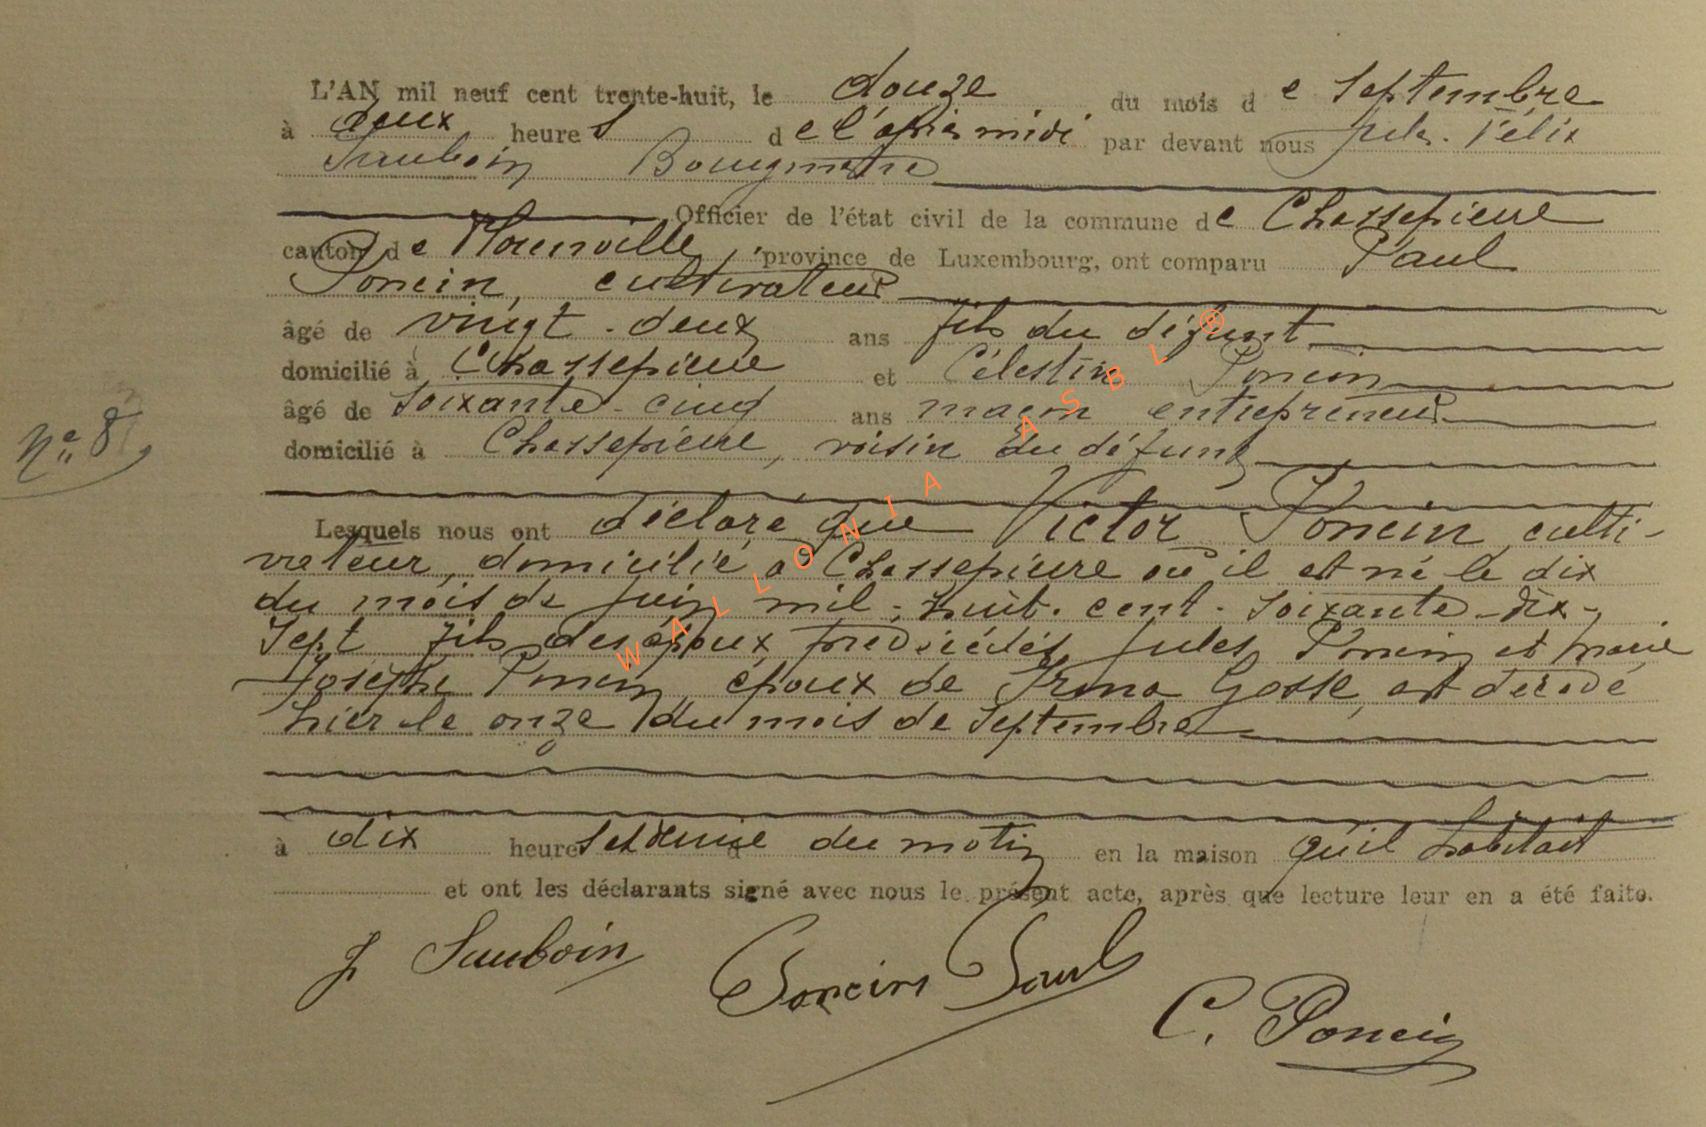 L'AN mil neuf cent trente-huit, le douze du mois de Septembre
à deux heures de l'après midi par devant nous Jules. Félix
Sauboin Bourgmestre
Officier de l'état civil de la commune de Chassepierre
canton de Florenville, province de Luxembourg, ont comparu Paul
Poncin, cultivateur
âgé de vingt-deux ans fils du défunt
domicilié à Chassepierre et Célestin Poncin
âgé de soixante-cinq ans maçon entrepreneur
domicilié à Chassepierre, voisin du défunt
N° 8
Lesquels nous ont déclaré que Victor Poncin culti-
vateur, domicilié à Chassepierre où il est né le dix
du mois de juin mil-huit-cent-soixante-dix-
sept fils des époux prédécédés Jules Poncin et Marie
Josèphe Poncin, époux de Irma Gosse, est décédé
hier le onze du mois de Septembre
à dix heures et demie du matin en la maison qu'il habitait
et ont les déclarants signé avec nous le présent acte, après que lecture leur en a été faite.
J Sauboin Poncin Paul
C. Poncin
WALLONIA ASBL ®